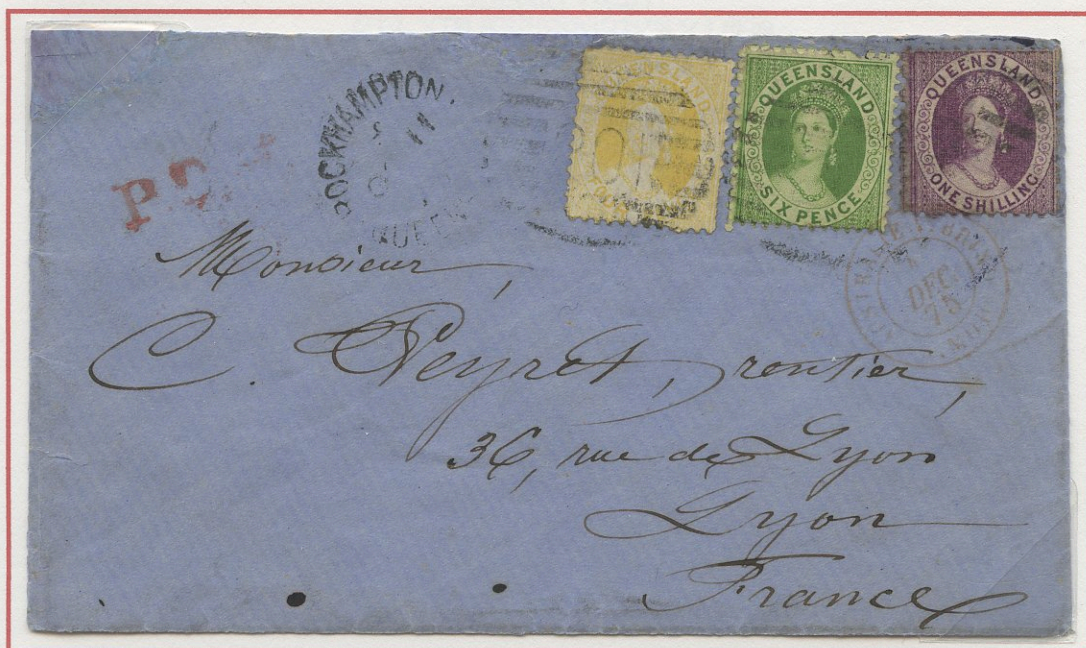 ROCKHAMPTON
QUEENSLAND
QUEENSLAND
SIX PENCE
QUEENSLAND
ONE SHILLING
DEC
75
Monsieur,
C. Peyret, rentier,
36, rue de Lyon
Lyon
France